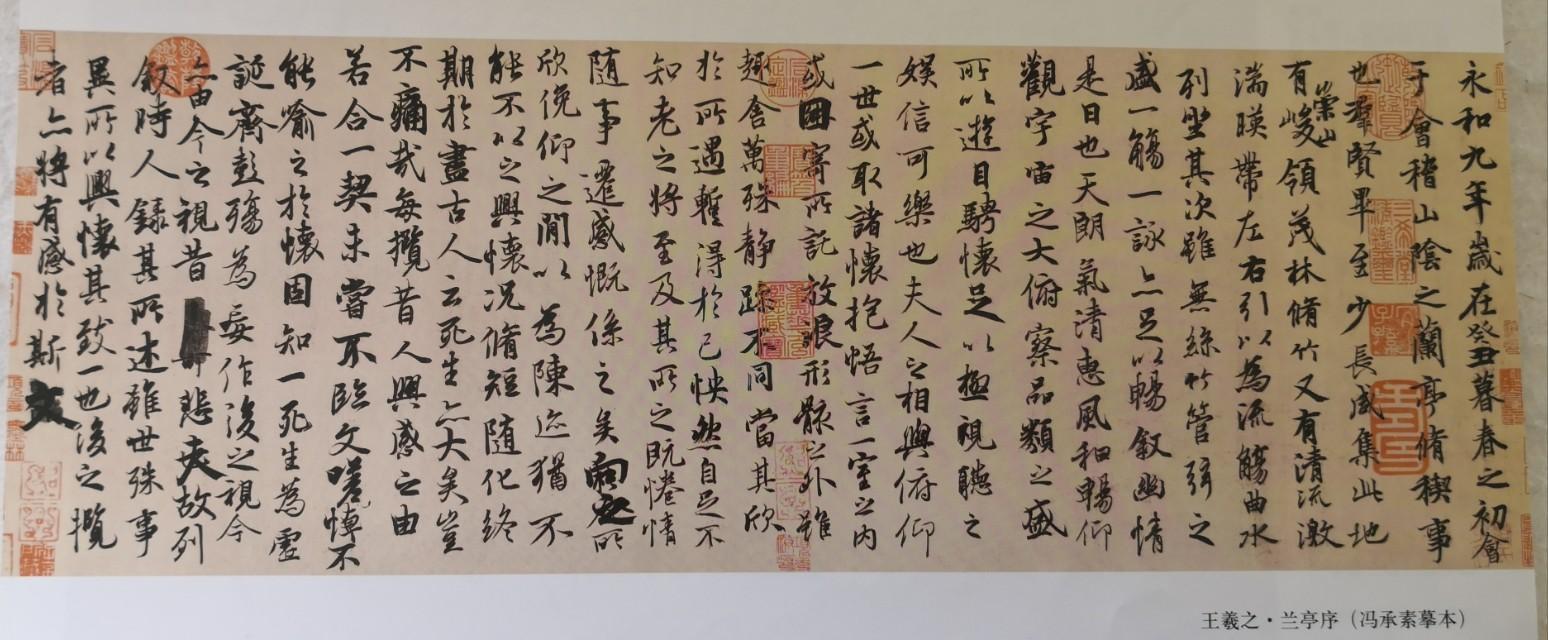 永和九年歲在癸丑暮春之初會
于會稽山陰之蘭亭脩稧事
也羣賢畢至少長咸集此地
有崇山峻領茂林脩竹又有清流激
湍暎帶左右引以為流觴曲水
列坐其次雖無絲竹管弦之
盛一觴一詠亦足以暢叙幽情
是日也天朗氣清惠風和暢仰
觀宇宙之大俯察品類之盛
所以遊目騁懷足以極視聽之
娛信可樂也夫人之相與俯仰
一世或取諸懷抱悟言一室之內
或因寄所託放浪形骸之外雖
趣舍萬殊靜躁不同當其欣
於所遇暫得於己怏然自足不
知老之將至及其所之既惓情
隨事遷感慨係之矣向之所
欣俛仰之間以為陳迹猶不
能不以之興懷況脩短隨化終
期於盡古人云死生亦大矣豈
不痛哉每攬昔人興感之由
若合一契未嘗不臨文嗟悼不
能喻之於懷固知一死生為虛
誕齊彭殤為妄作後之視今
亦由今之視昔悲夫故列
叙時人錄其所述雖世殊事
異所以興懷其致一也後之攬
者亦將有感於斯文
王羲之·兰亭序（冯承素摹本）